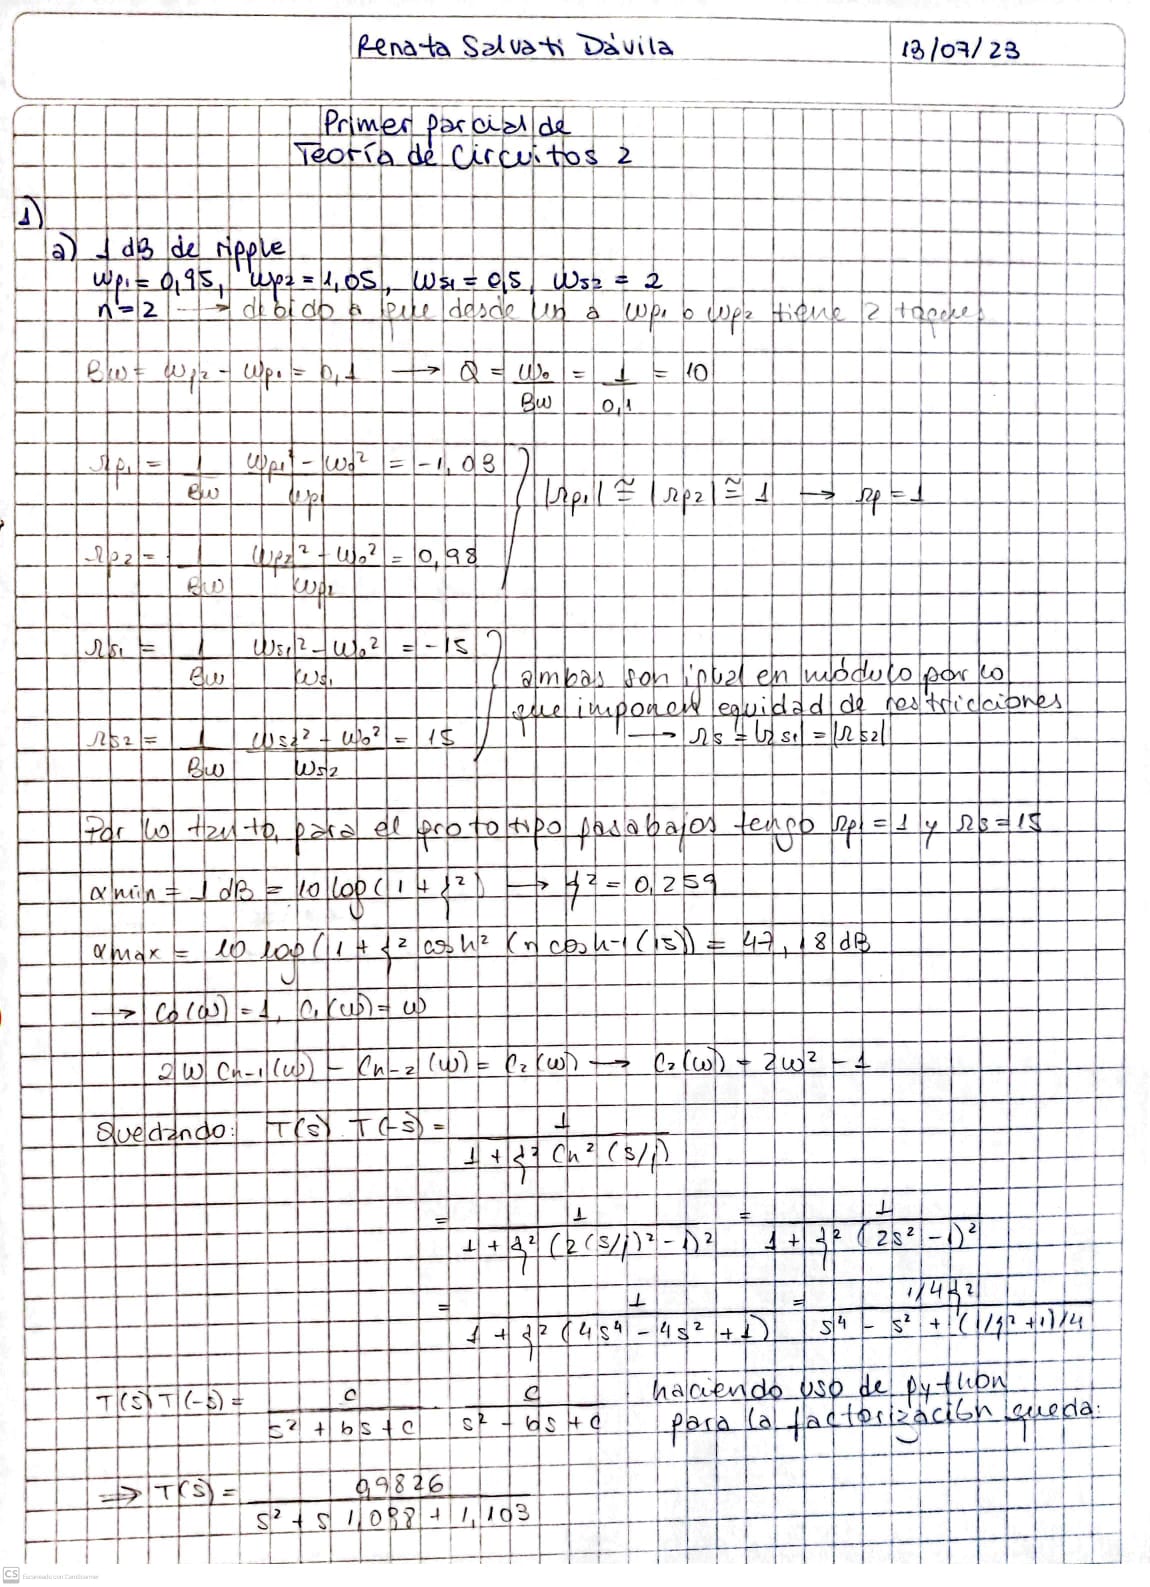 Renata Salvati Dávila 13/07/23
Primer parcial de
Teoría de Circuitos 2
1)
a) 1 dB de ripple
ωp1 = 0,95, ωp2 = 1,05, ωs1 = 0,5, ωs2 = 2
n=2 → debido a que desde un a ωp1 o ωp2 tiene 2 toques
BW = ωp2 - ωp1 = 0,1 → Q = ω0/BW = 1/0,1 = 10
Ωp1 = 1/BW (ωp1² - ω0²)/ωp1 = -1,03
|Ωp1| ≅ |Ωp2| ≅ 1 → Ωp = 1
Ωp2 = 1/BW (ωp2² - ω0²)/ωp2 = 0,98
Ωs1 = 1/BW (ωs1² - ω0²)/ωs1 = -15
ambas son igual en módulo por lo
que imponen equidad de restricciones
Ωs2 = 1/BW (ωs2² - ω0²)/ωs2 = 15 → Ωs = |Ωs1| = |Ωs2|
Por lo tanto, para el prototipo pasabajos tengo Ωp = 1 y Ωs = 15
αmin = 1 dB = 10 log(1 + ξ²) → ξ² = 0,259
αmax = 10 log(1 + ξ² cosh² (n cosh-1(15)) = 47,18 dB
→ C0(ω) = 1, C1(ω) = ω
2ω Cn-1(ω) - Cn-2(ω) = C2(ω) → C2(ω) = 2ω² - 1
Quedando: T(s) . T(-s) = 1/(1 + ξ² Cn² (s/j))
= 1/(1 + ξ² (2(s/j)² - 1)²) = 1/(1 + ξ² (2s² - 1)²)
= 1/(1 + ξ² (4s⁴ - 4s² + 1)) = (1/4ξ²)/(s⁴ - s² + (1/ξ² + 1)/4)
T(s) T(-s) = c/(s² + bs + c) c/(s² - bs + c) haciendo uso de python
para la factorización queda:
⇒ T(s) = 0,9826/(s² + s 1,098 + 1,103)
CS Escaneado con CamScanner